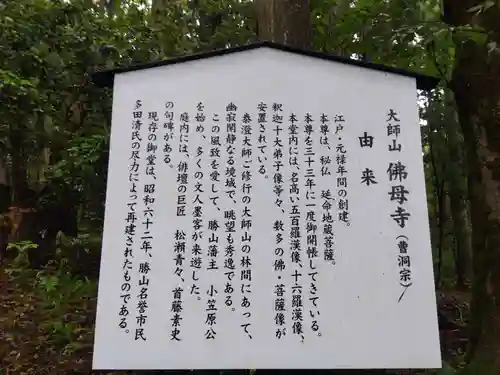 大師山 佛母寺(曹洞宗)
由来
江戸・元禄年間の創建。
本尊は、秘仏 延命地蔵菩薩。
本尊を三十三年に二度御開帳してきている。
本堂内には、名高い五百羅漢像、十六羅漢像、
釈迦十大弟子像等々、数多の佛・菩薩像が
安置されている。
泰澄大師ご修行の大師山の林間にあって、
幽寂閑静なる境域で、眺望も秀逸である。
この風致を愛して、勝山藩主 小笠原公
を始め、多くの文人墨客が来遊した。
庭内には、俳壇の巨匠 松瀬青々、首藤素史
の句碑がある。
現存の御堂は、昭和六十二年、勝山名誉市民
多田清氏の尽力によって再建されたものである。